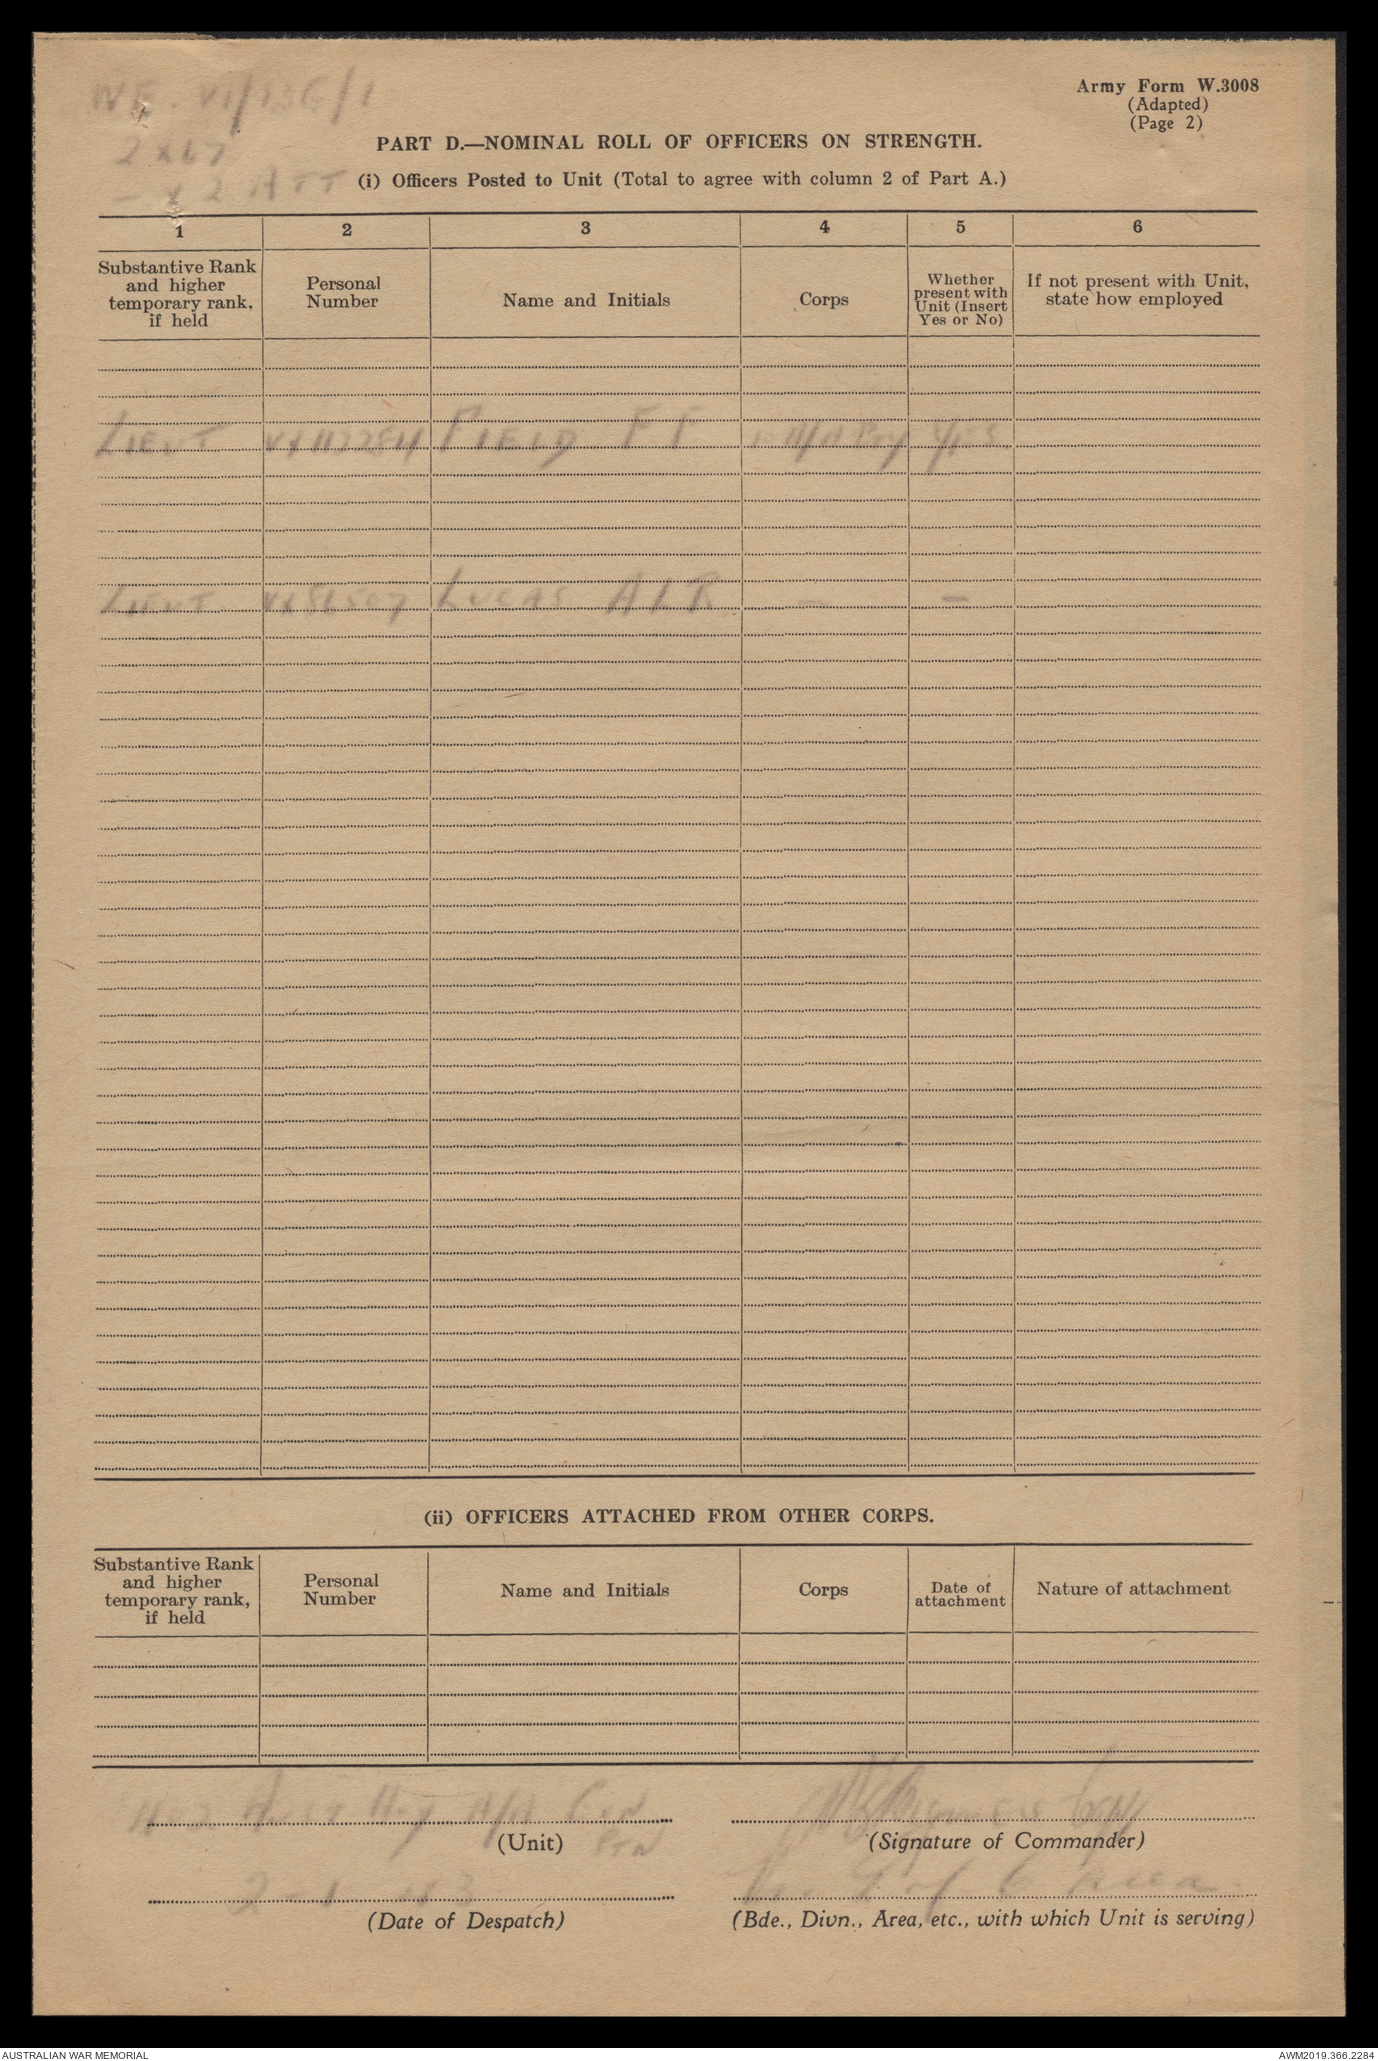 WE. VI/13G/1
2 x 67
- x 2 ATT
Army Form W.3008
(Adapted)
(Page 2)
PART D.—NOMINAL ROLL OF OFFICERS ON STRENGTH.
(i) Officers Posted to Unit (Total to agree with column 2 of Part A.)
1 2 3 4 5 6
Substantive Rank and higher temporary rank, if held
Personal Number
Name and Initials
Corps
Whether present with Unit (Insert Yes or No)
If not present with Unit, state how employed
LIEUT FIELD F F Yes
LIEUT LUCAS A L R — —
(ii) OFFICERS ATTACHED FROM OTHER CORPS.
Substantive Rank and higher temporary rank, if held
Personal Number
Name and Initials
Corps
Date of attachment
Nature of attachment
Aust Hvy A/A
(Unit)
(Signature of Commander)
2 - 1 43
L of C Area
(Date of Despatch)
(Bde., Divn., Area, etc., with which Unit is serving)
AUSTRALIAN WAR MEMORIAL
AWM2019.366.2284